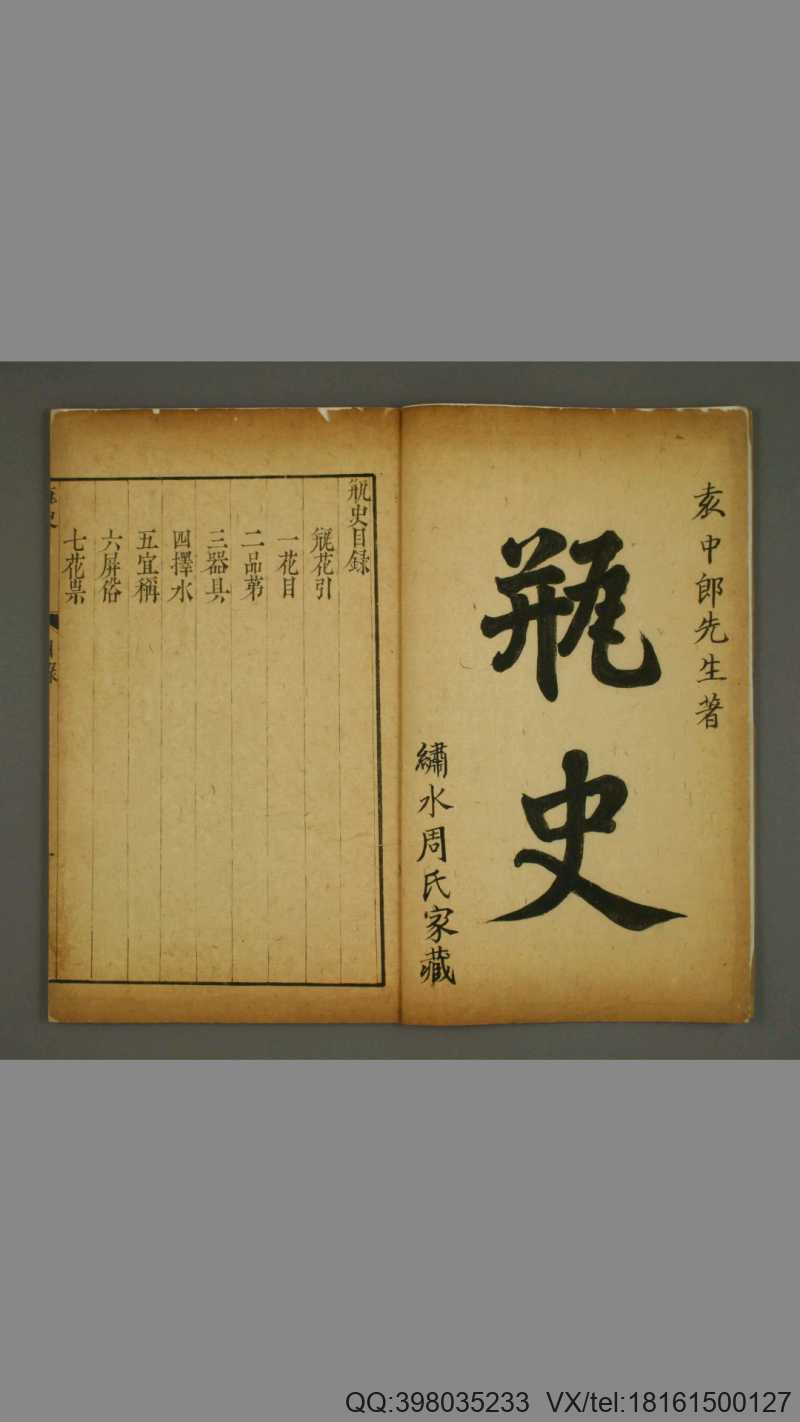 袁中郎先生著
瓶史
繡水周氏家藏
瓶史目録
瓶花引
一花目
二品苐
三器具
四擇水
五宜稱
六屏俗
七花祟
QQ:398035233 VX/tel:18161500127